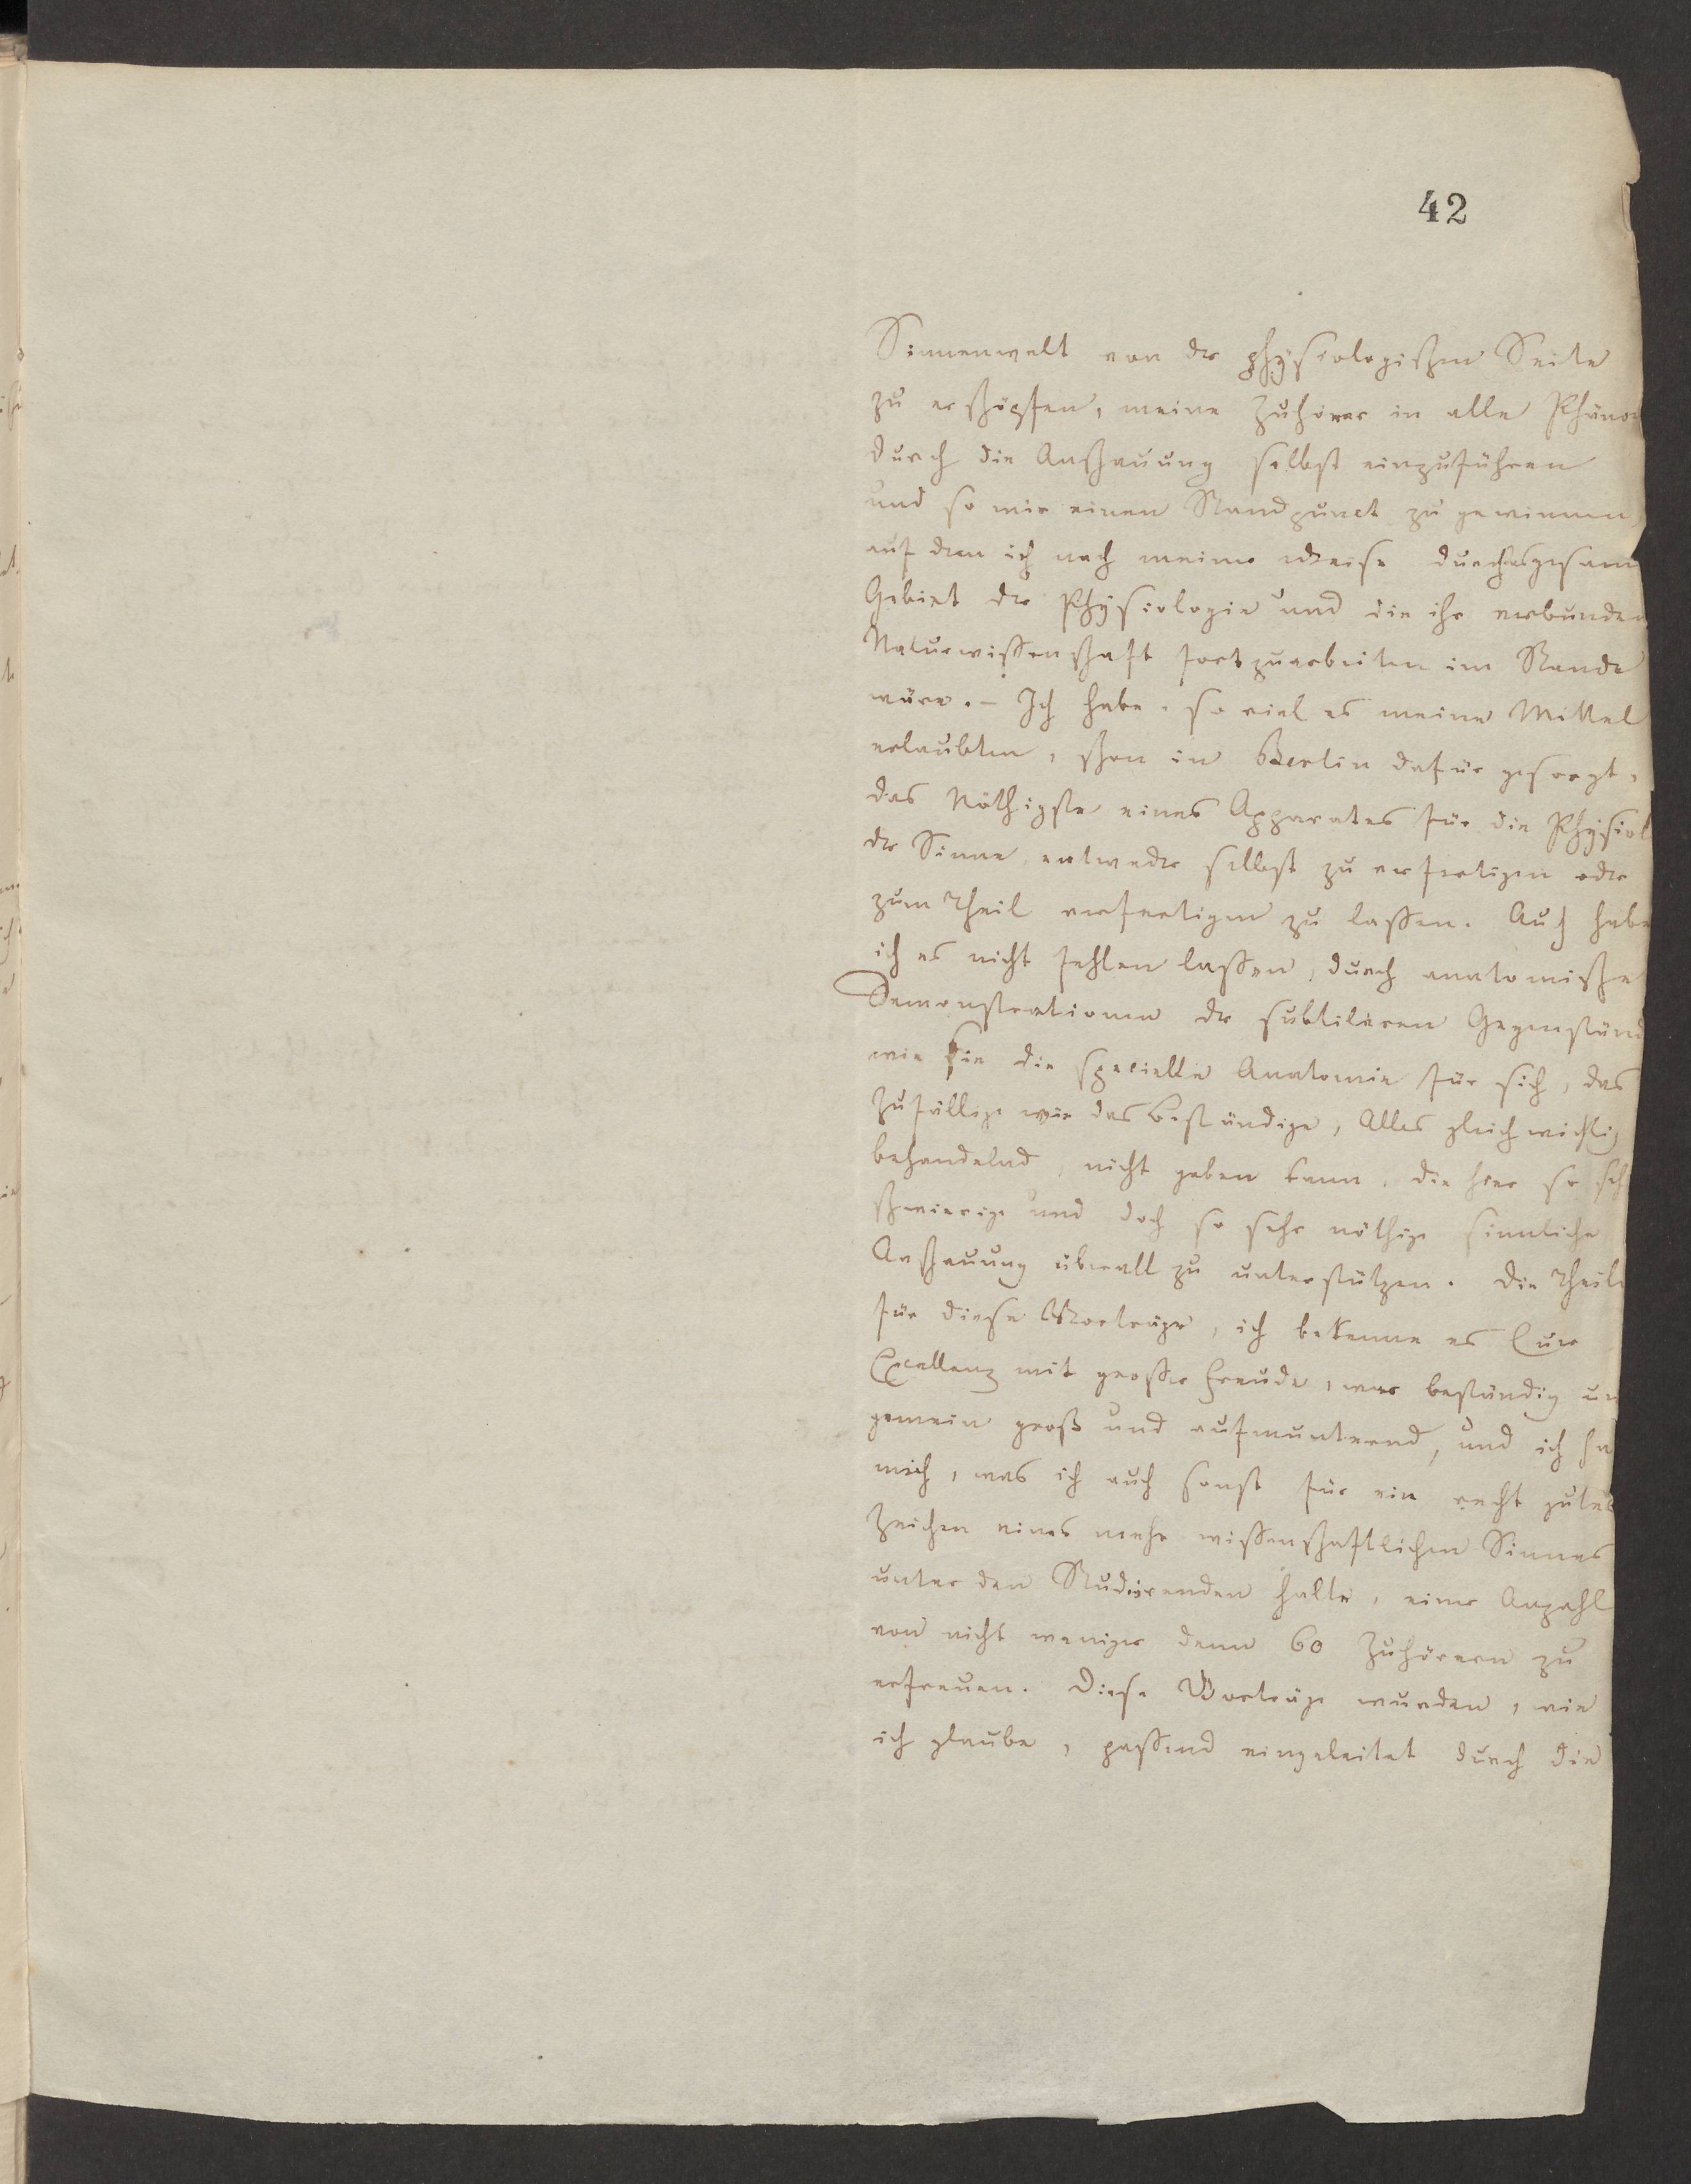 42
Sinnenwelt von der physiologischen Seite
zu erschöpfen, meine Zuhörer in alle Phäno
durch die Anschauung selbst einzuführen
und so mir einen Standpunct zu gewinnen
auf dem ich nach meiner Weise durch das gesam
Gebiet der Physiologie und die ihr verbunden
Naturwissenschaft fortzuarbeiten im Stande
wäre. – Ich habe, so viel es meine Mittel
erlaubten, schon in Berlin dafür gesorgt,
das Nöthigste eines Apparates für die Physiol
der Sinne entweder selbst zu verfertigen oder
zum Theil verfertigen zu lassen. Auch habe
ich es nicht fehlen lassen, durch anatomische
Demonstrationen der subtileren Gegenständ
wie sie die specielle Anatomie für sich, das
Zufällige wie das Beständige, Alles gleich wichtig
behandelnd, nicht geben kann, die hier so seh
schwierige und doch so sehr nöthige sinnliche
Anschauung überall zu unterstützen. Die Theiln
für diese Vorträge, ich bekenne es Eurer
Excellenz mit grosser Freude, war beständig un
gemein gross und aufmunternd, und ich ha
mich, was ich auch sonst für ein recht gutes
Zeichen eines mehr wissenschaftlichen Sinnes
unter den Studirenden halte, einer Anzahl
von nicht weniger denn 60 Zuhörern zu
erfreuen. Diese Vorträge wurden, wie
ich glaube, passend eingeleitet durch die